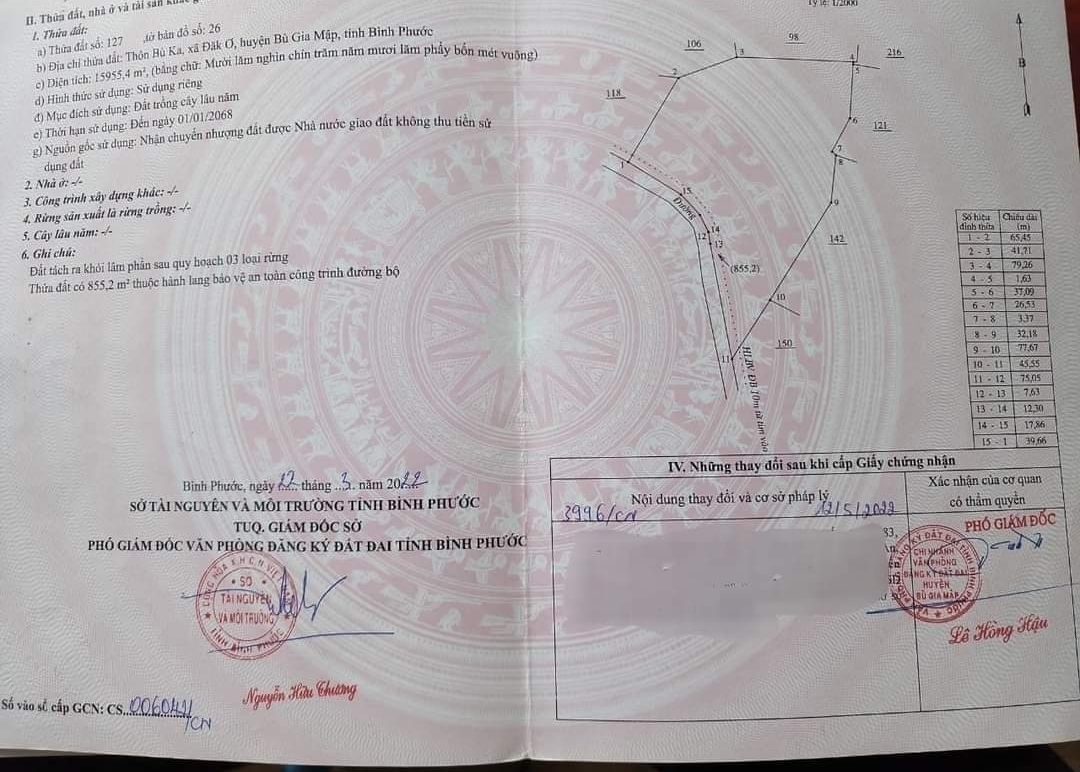 II. Thửa đất, nhà ở và tài sản
1. Thửa đất:
a) Thửa đất số: 127 ,tờ bản đồ số: 26
b) Địa chỉ thửa đất: Thôn Bù Ka, xã Đăk Ơ, huyện Bù Gia Mập, tỉnh Bình Phước
c) Diện tích: 15955,4 m², (bằng chữ: Mười lăm nghìn chín trăm năm mươi lăm phẩy bốn mét vuông)
d) Hình thức sử dụng: Sử dụng riêng
đ) Mục đích sử dụng: Đất trồng cây lâu năm
e) Thời hạn sử dụng: Đến ngày 01/01/2068
g) Nguồn gốc sử dụng: Nhận chuyển nhượng đất được Nhà nước giao đất không thu tiền sử
dụng đất
2. Nhà ở: -/-
3. Công trình xây dựng khác: -/-
4. Rừng sản xuất là rừng trồng: -/-
5. Cây lâu năm: -/-
6. Ghi chú:
Đất tách ra khỏi lâm phần sau quy hoạch 03 loại rừng
Thửa đất có 855,2 m² thuộc hành lang bảo vệ an toàn công trình đường bộ
Bình Phước, ngày 22 tháng 3 năm 2022
SỞ TÀI NGUYÊN VÀ MÔI TRƯỜNG TỈNH BÌNH PHƯỚC
TUQ. GIÁM ĐỐC SỞ
PHÓ GIÁM ĐỐC VĂN PHÒNG ĐĂNG KÝ ĐẤT ĐAI TỈNH BÌNH PHƯỚC
SỞ
TÀI NGUYÊN
VÀ MÔI TRƯỜNG
TỈNH BÌNH PHƯỚC
Nguyễn Hữu Chương
Số vào sổ cấp GCN: CS
/CN
Tỷ lệ: 1/2000
B
98
106
3
4
216
5
2
118
6
121
7
8
1
15
9
Đường
14
12
13
142
(855,2)
10
150
11
HLBV ĐB 10m từ tim vào
Số hiệu đỉnh thửa Chiều dài (m)
1 - 2 65,45
2 - 3 41,71
3 - 4 79,26
4 - 5 1,63
5 - 6 37,09
6 - 7 26,53
7 - 8 3,37
8 - 9 32,18
9 - 10 77,67
10 - 11 45,55
11 - 12 75,05
12 - 13 7,63
13 - 14 12,30
14 - 15 17,86
15 - 1 39,66
IV. Những thay đổi sau khi cấp Giấy chứng nhận
Nội dung thay đổi và cơ sở pháp lý
Xác nhận của cơ quan
có thẩm quyền
3996/CN 12/5/2022
83,
PHÓ GIÁM ĐỐC
CHI NHÁNH
VĂN PHÒNG
ĐĂNG KÝ ĐẤT ĐAI
HUYỆN
BÙ GIA MẬP
Lê Hồng Hậu